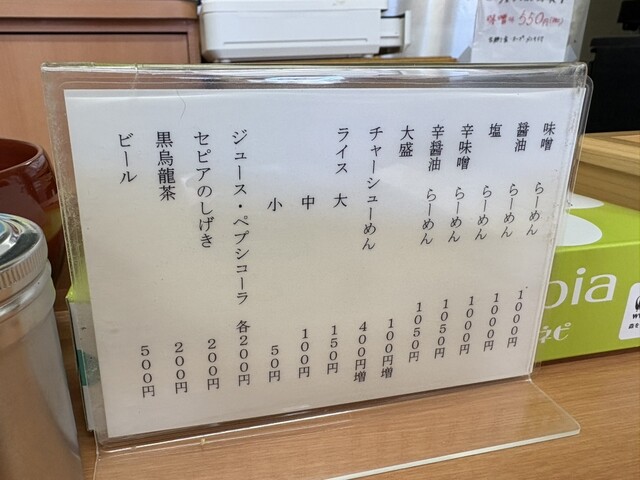 味噌 らーめん 1000円
醤油 らーめん 1000円
塩 らーめん 1000円
辛味噌 らーめん 1050円
辛醤油 らーめん 1050円
大盛 100円増
チャーシューめん 400円増
ライス 大 150円
中 100円
小 50円
ジュース・ペプシコーラ 各200円
セピアのしげき 200円
黒烏龍茶 200円
ビール 500円
550円
pia
ネピ